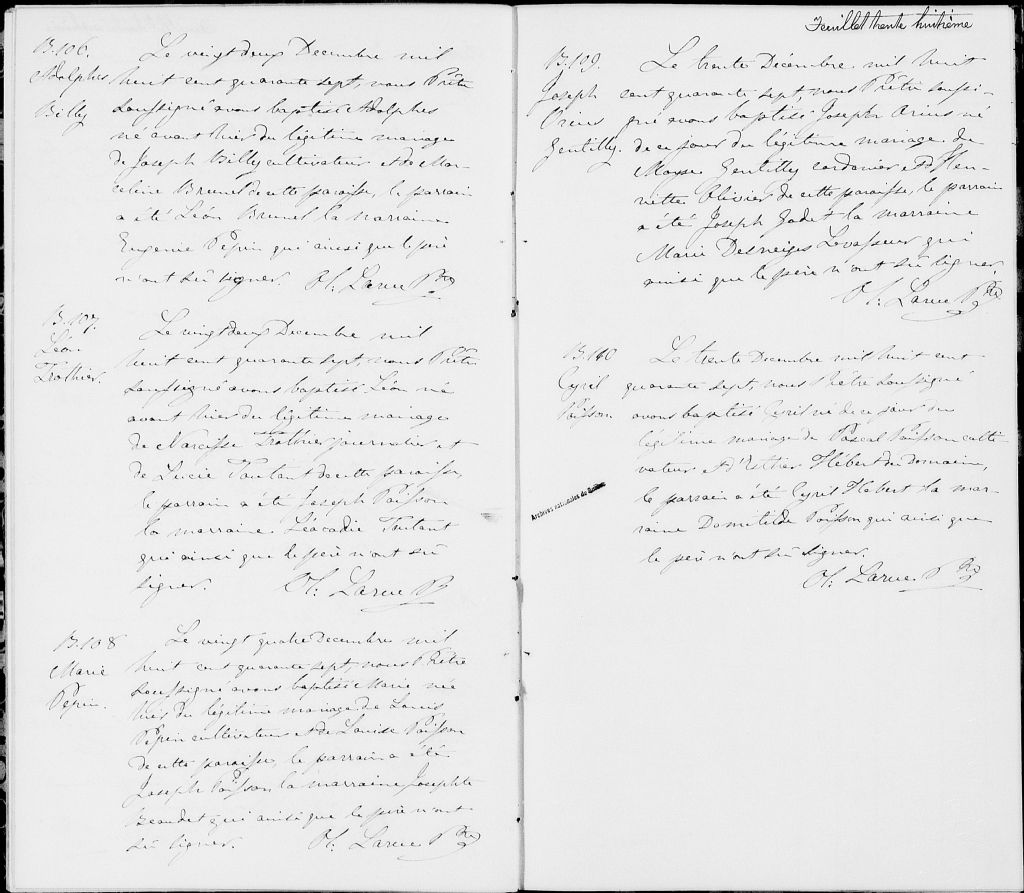 B.106.
Adolphes
Billy
Le vingt deux Decembre mil
huit cent quarante sept, nous Prêtre
soussigné avons baptisé Adolphes
né avant hier du légitime mariage
de Joseph Billy cultivateur et de Mar-
celine Brunel de cette paroisse, le parrain
a été Léon Brunel la marraine
Eugenie Pépin qui ainsi que le père
n'ont sû signer. Ol: Larue Ptre
B.107.
Léon
Trottier.
Le vingt deux Decembre mil
huit cent quarante sept, nous Prêtre
soussigné avons baptisé Léon né
avant hier du légitime mariage
de Narcisse Trottier journalier et
de Lucie Toutant de cette paroisse,
le parrain a été Joseph Poisson
la marraine Léocadie Toutant
qui ainsi que le père n'ont sû
signer. Ol: Larue P
B.108
Marie
Pépin.
Le vingt quatre Decembre mil
huit cent quarante sept, nous Prêtre
soussigné avons baptisé Marie née
hier du légitime mariage de Louis
Pépin cultivateur et de Louise Poisson
de cette paroisse, le parrain a été
Joseph Poisson la marraine Josephte
Beaudet qui ainsi que le père n'ont
sû signer. Ol: Larue Ptre
Feuillet trente huitième
B.109.
Joseph
Orius
Gentilly.
Le trente Décembre mil huit
cent quarante sept, nous Prêtre soussi-
gné avons baptisé Joseph Orius né
de ce jour du légitime mariage de
Moyse Gentilly cordonier et d'Hen-
riette Olivier de cette paroisse, le parrain
a été Joseph Jadet la marraine
Marie Desneiges Levasseur qui
ainsi que le père n'ont sû signer
Ol: Larue Ptre
B.110
Cyril
Poisson
Le trente Decembre mil huit cent
quarante sept, nous Prêtre soussigné
avons baptisé Cyril né de ce jour du
légitime mariage de Pascal Poisson culti-
vateur et d'Esther Hébert du Domaine,
le parrain a été Cyril Hebert la mar-
raine Domitilde Poisson qui ainsi que
le père n'ont sû signer.
Ol: Larue Ptre
Archives nationales du Québec